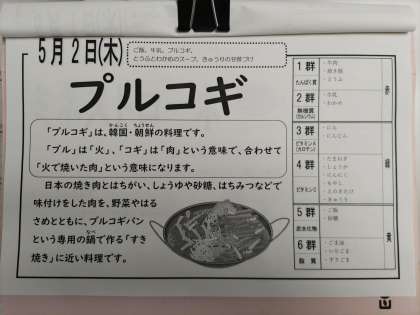 5月2日(木)
ご飯、牛乳、プルコギ、
とうふとわかめのスープ、きゅうりの甘酢づけ
プルコギ
かんこく ちょうせん
「プルコギ」は、韓国・朝鮮の料理です。
「プル」は「火」、「コギ」は「肉」という意味で、合わせて
「火で焼いた肉」という意味になります。
日本の焼き肉とはちがい、しょうゆや砂糖、はちみつなどで
味付けをした肉を、野菜やはる
さめとともに、プルコギパン
なべ
という専用の鍋で作る「すき
焼き」に近い料理です。
1群
たんぱく質
・牛肉
・とうふ
2群
無機質
(カルシウム)
・牛乳
・わかめ
赤
3群
ビタミンA
(カロテン)
・にら
・にんじん
4群
ビタミンC
・たまねぎ
・しょうが
・にんにく
・もやし
・えのきたけ
・きゅうり
緑
5群
炭水化物
・ご飯
・砂糖
6群
脂質
・ごま油
・いりごま
・すりごま
黄